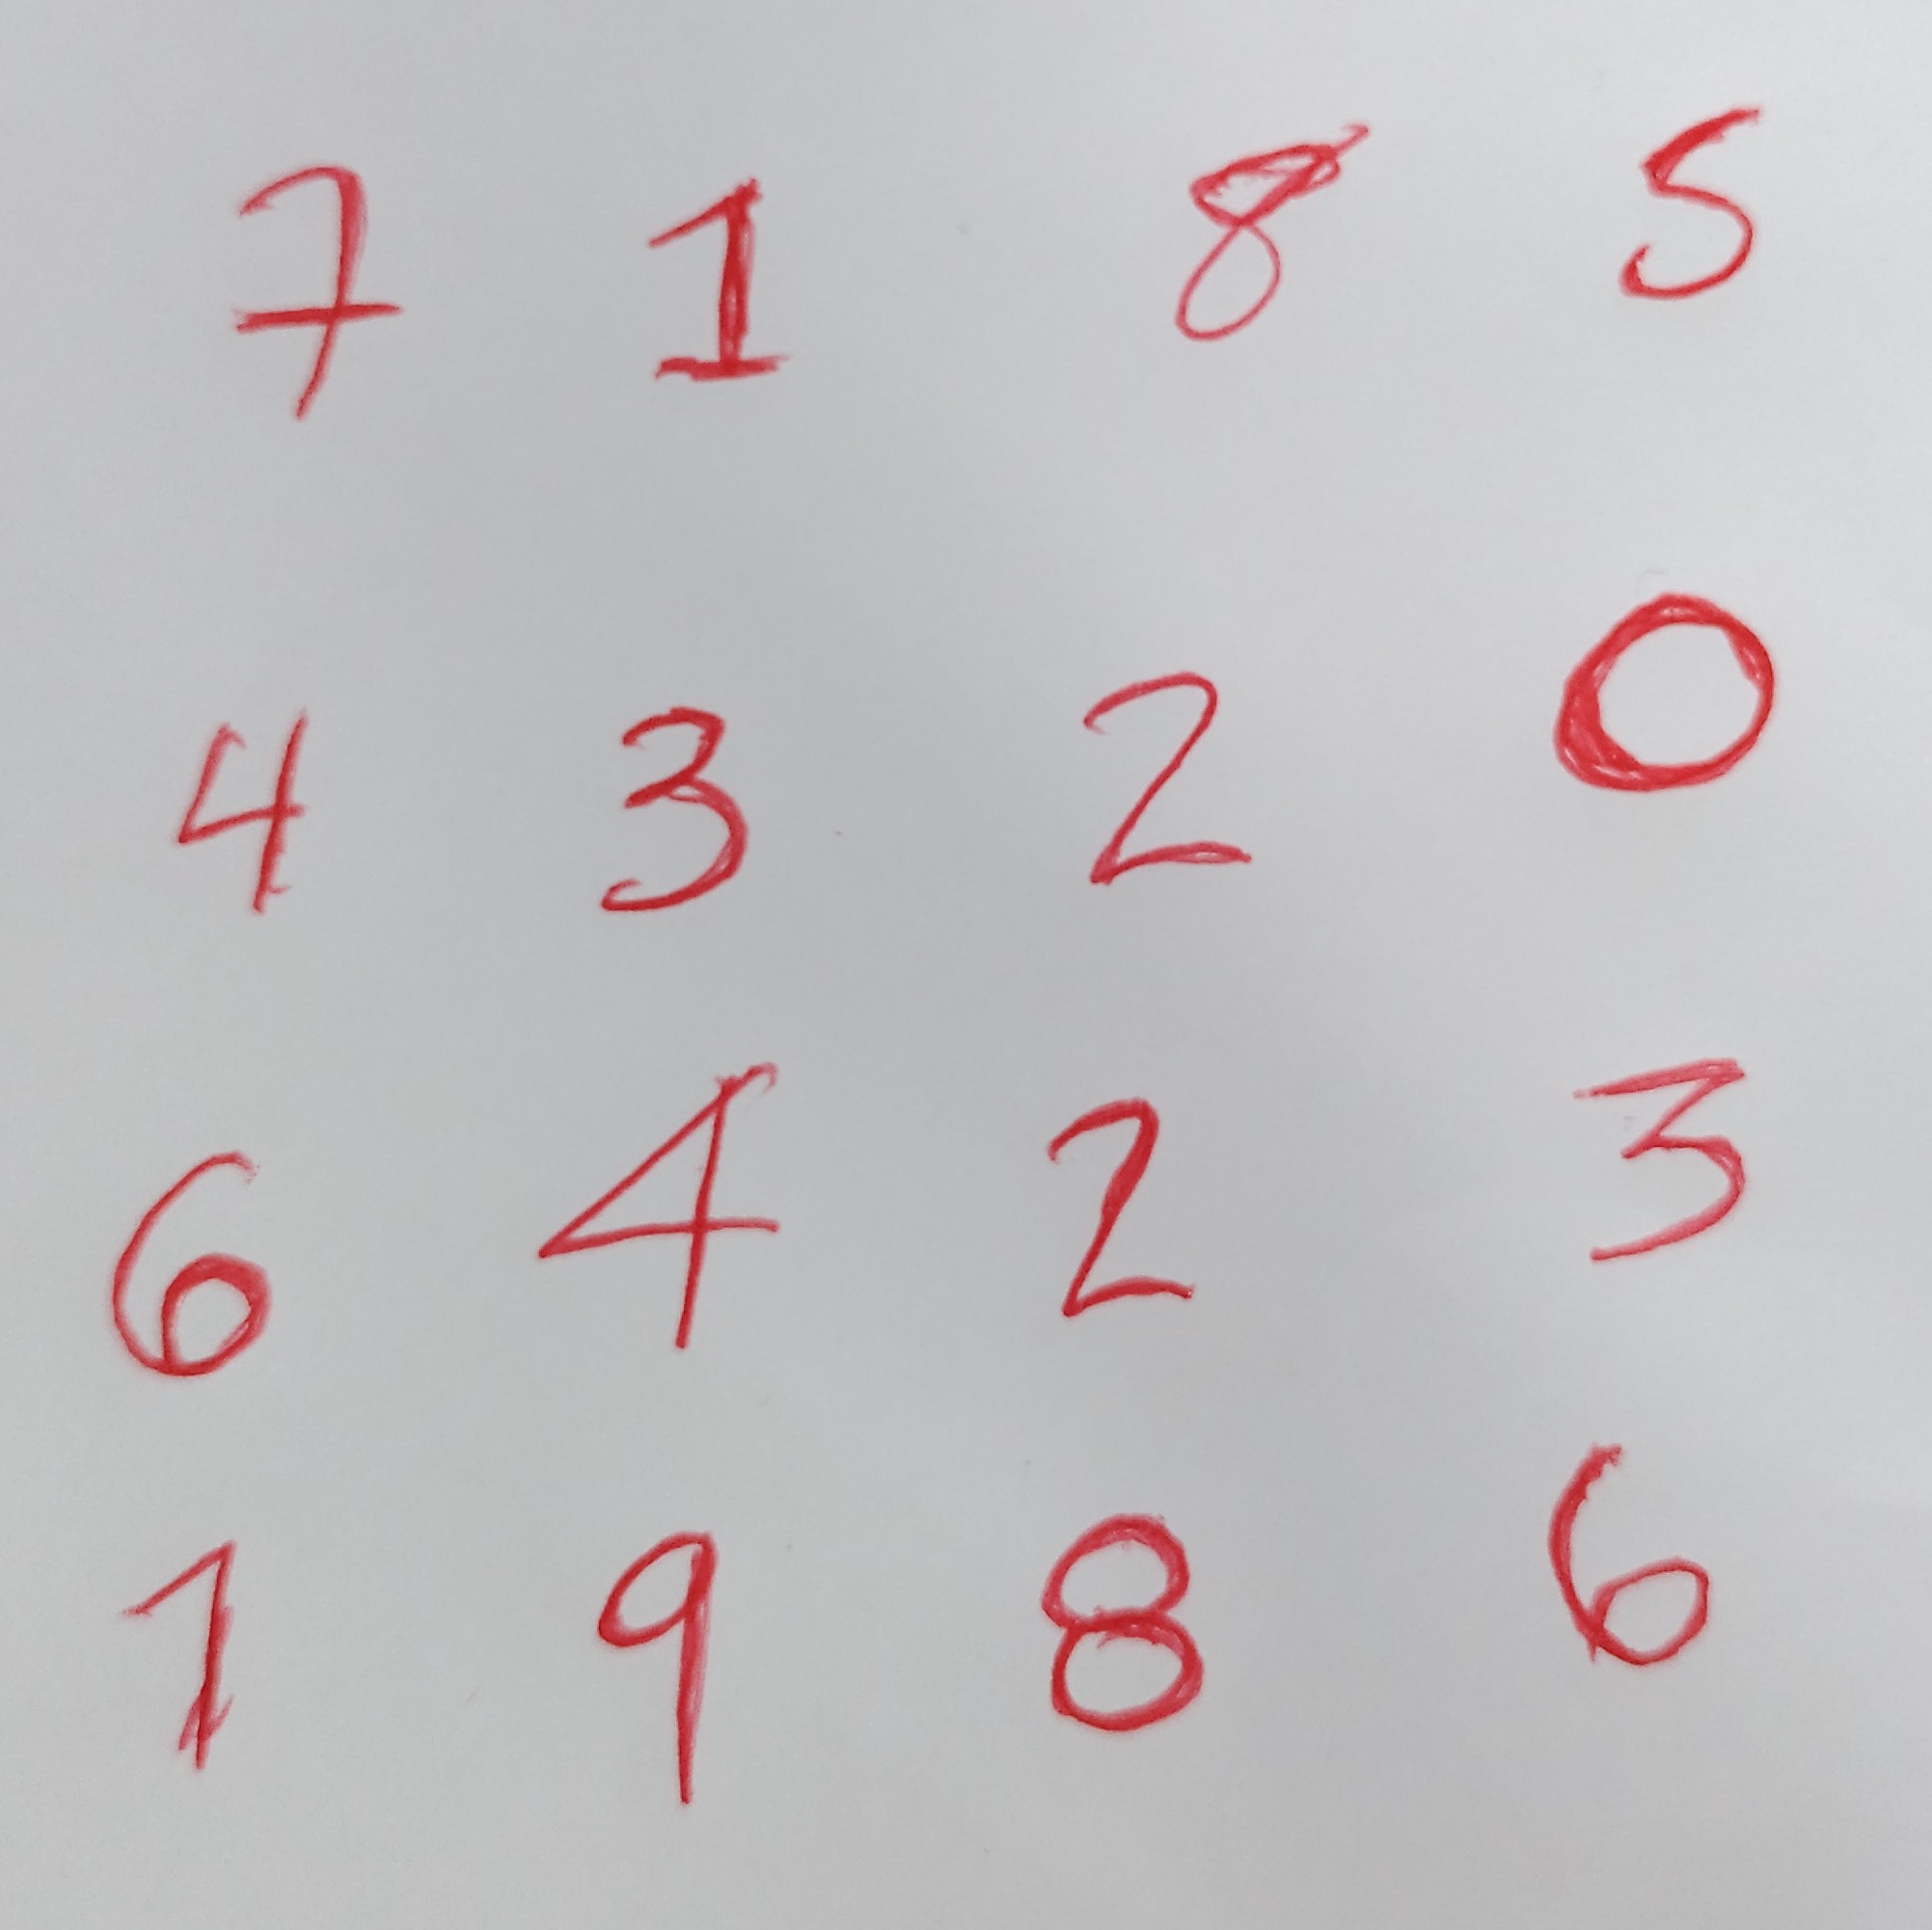 7 1 8 5
4 3 2 0
6 4 2 3
1 9 8 6